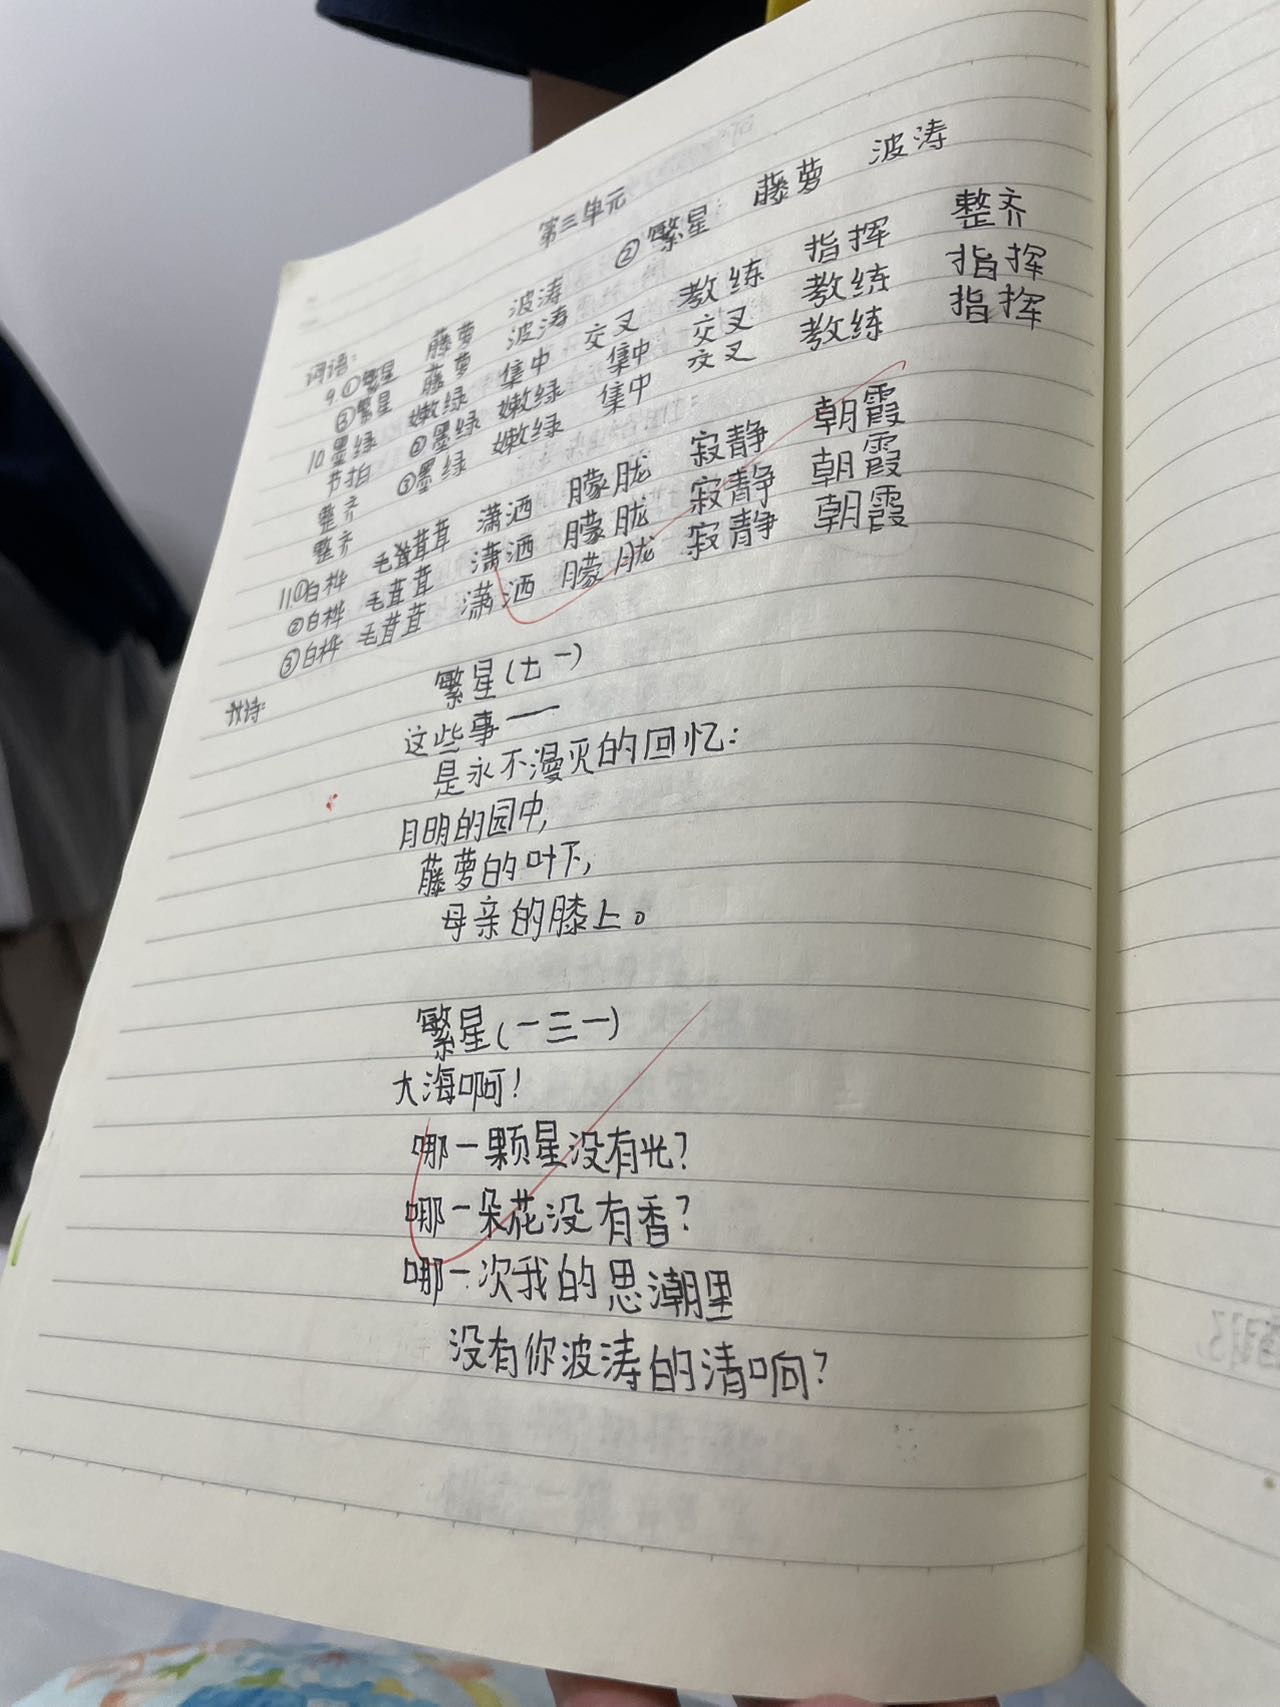 第三单元
词语:
9.①繁星 藤萝 波涛 ②繁星 藤萝 波涛
③繁星 藤萝 波涛
10墨绿 嫩绿 集中 交叉 教练 指挥 整齐
节拍 ②墨绿 嫩绿 集中 交叉 教练 指挥
整齐 ③墨绿 嫩绿 集中 交叉 教练 指挥
整齐
11.①白桦 毛茸茸 潇洒 朦胧 寂静 朝霞
②白桦 毛茸茸 潇洒 朦胧 寂静 朝霞
③白桦 毛茸茸 潇洒 朦胧 寂静 朝霞
抄诗:
繁星(七一)
这些事——
是永不漫灭的回忆:
月明的园中,
藤萝的叶下,
母亲的膝上。
繁星(一三一)
大海啊!
哪一颗星没有光?
哪一朵花没有香?
哪一次我的思潮里
没有你波涛的清响?